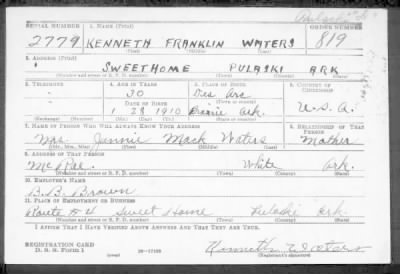 Pulaski
SERIAL NUMBER 1. NAME (Print) ORDER NUMBER
2779 KENNETH FRANKLIN WATERS 819
(First) (Middle) (Last)
2. ADDRESS (Print)
SWEET HOME PULASKI ARK
(Number and street or R. F. D. number) (Town) (County) (State)
3. TELEPHONE 4. AGE IN YEARS 5. PLACE OF BIRTH 6. COUNTRY OF CITIZENSHIP
30 Des Arc
(Town or county)
DATE OF BIRTH
1 28 1910 Prairie Ark. U.S.A.
(Exchange) (Number) (Mo.) (Day) (Yr.) (State or country)
7. NAME OF PERSON WHO WILL ALWAYS KNOW YOUR ADDRESS 8. RELATIONSHIP OF THAT PERSON
Mrs. Jennie Mack Waters Mother
(Mr., Mrs., Miss) (First) (Middle) (Last)
9. ADDRESS OF THAT PERSON
McRae. White Ark.
(Number and street or R. F. D. number) (Town) (County) (State)
10. EMPLOYER'S NAME
B. B. Brown
11. PLACE OF EMPLOYMENT OR BUSINESS
Route #4 Sweet Home Pulaski Ark
(Number and street or R. F. D. number) (Town) (County) (State)
I AFFIRM THAT I HAVE VERIFIED ABOVE ANSWERS AND THAT THEY ARE TRUE.
REGISTRATION CARD
D. S. S. Form 1 16-17105 Kenneth Waters
(over)